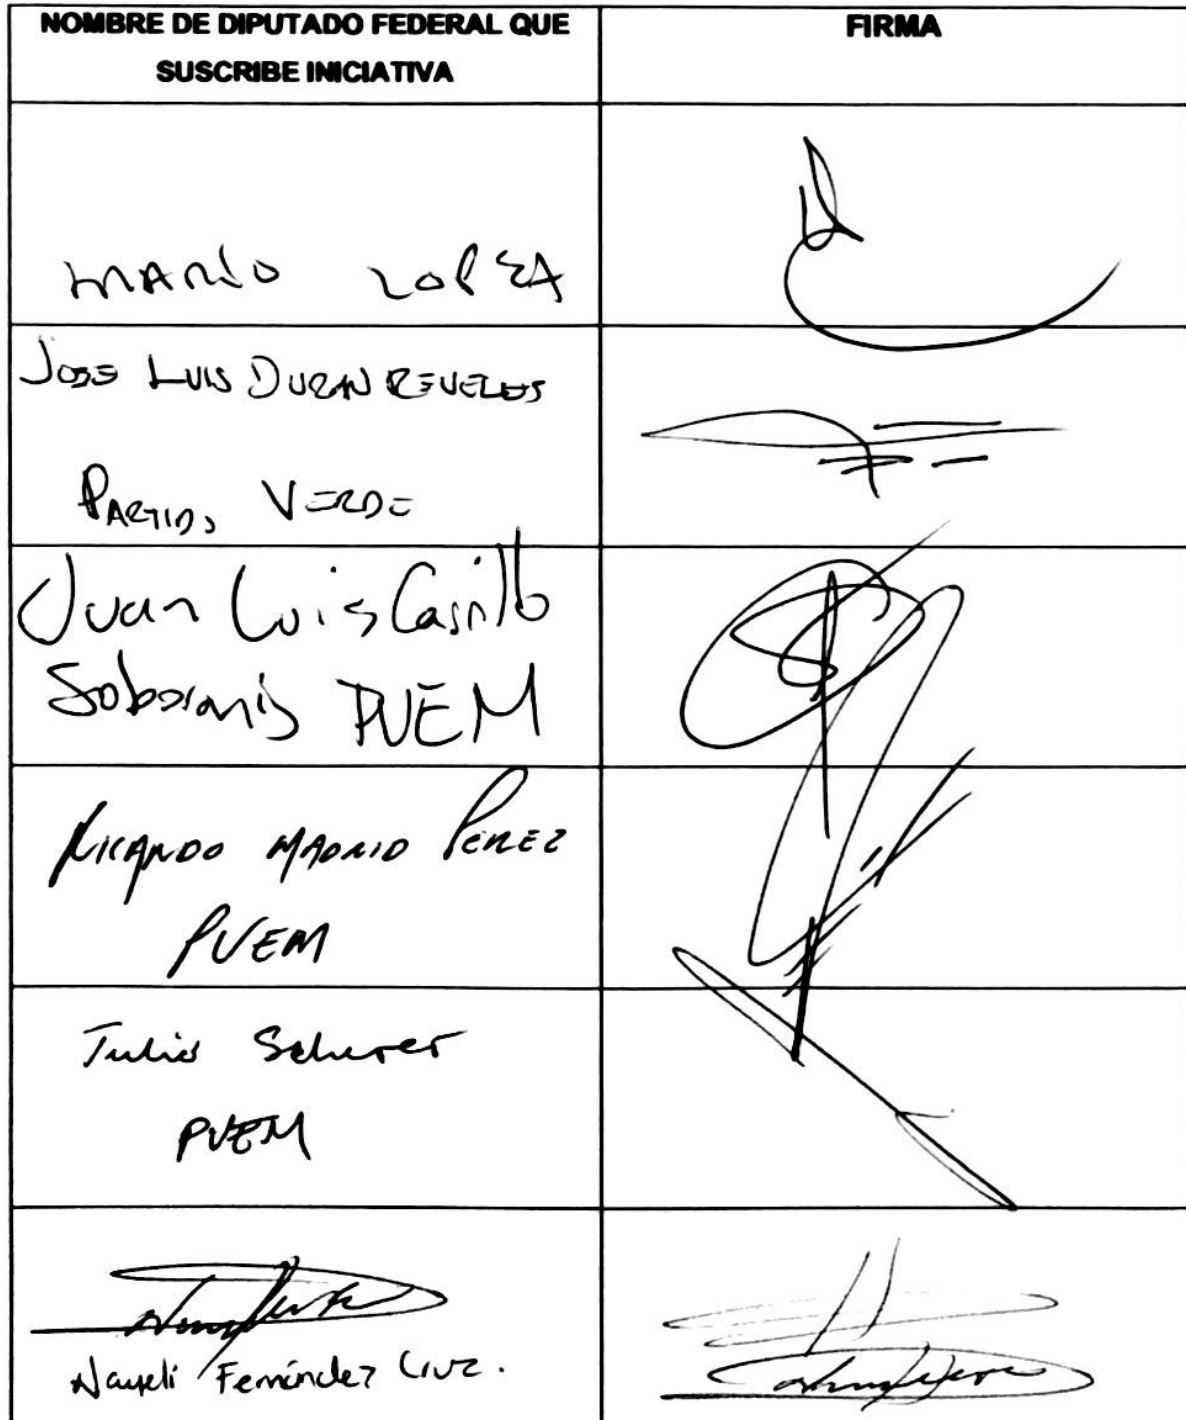 NOMBRE DE DIPUTADO FEDERAL QUE
SUSCRIBE INICIATIVA
FIRMA
MARIO LOPEZ
JOSE LUIS DURAN REVELES
PARTIDO VERDE
Juan Luis Carrillo
Soberanis PVEM
RICARDO MADRID PEREZ
PVEM
Julio Scherer
PVEM
Nayeli Fernández Cruz.